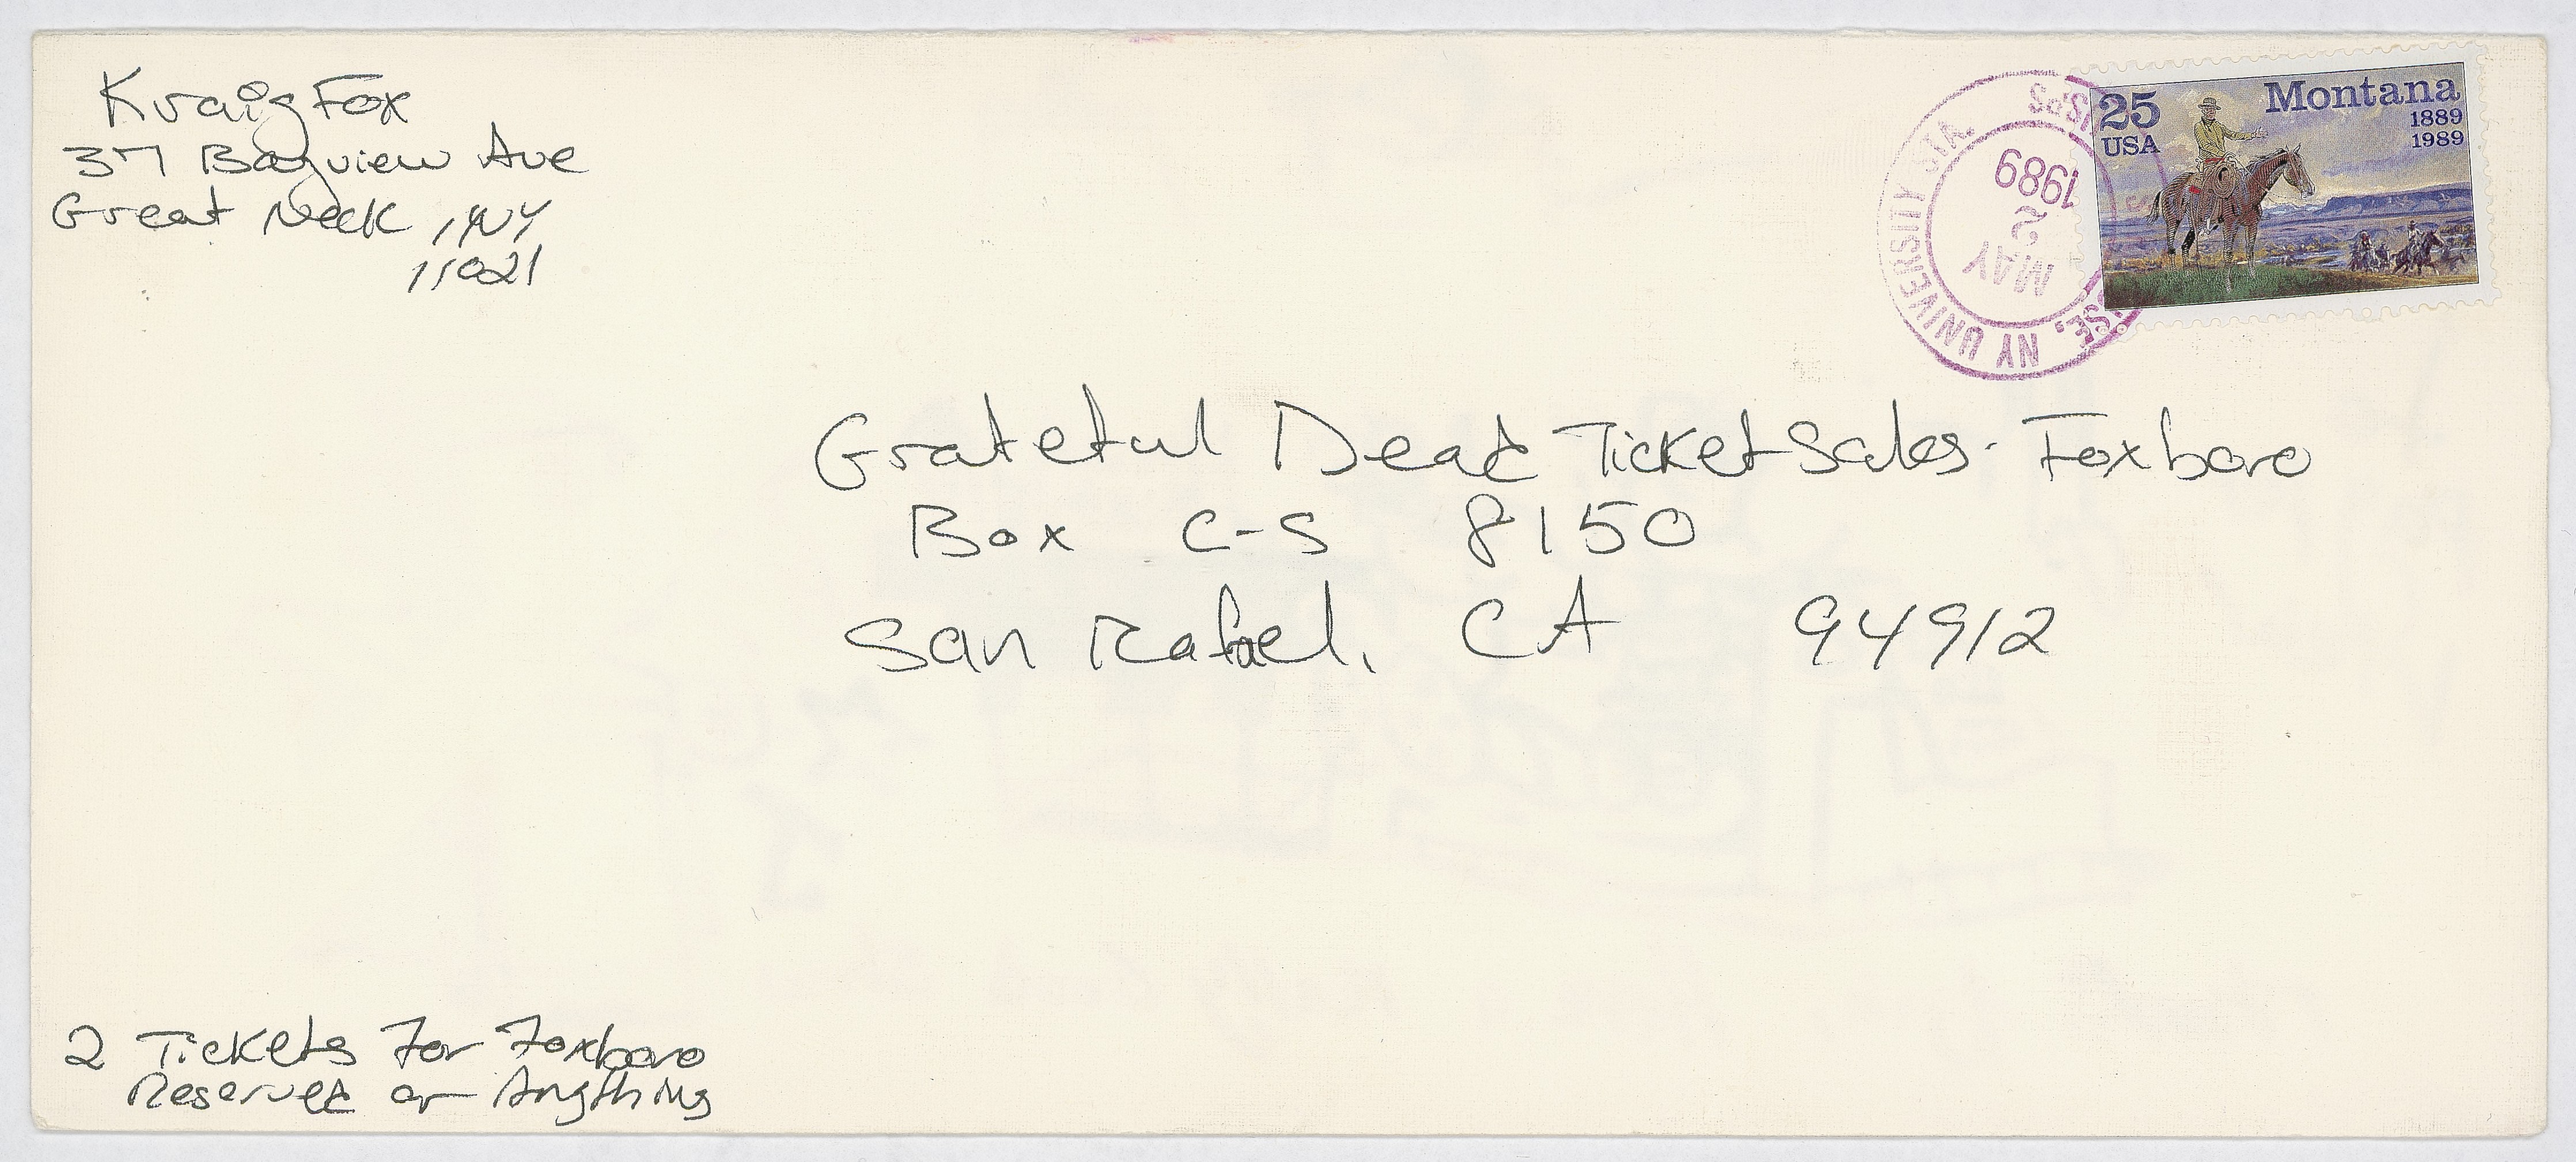 Kraig Fox
37 Bayview Ave
Great Neck, NY
11021
25
USA
Montana
1889
1989
USPS
SE, NY UNIVERSITY STA.
MAY
2
1989
Grateful Dead Ticket Sales - Foxboro
Box C-S 8150
San Rafael, CA 94912
2 Tickets For Foxboro
Reserved or Anything